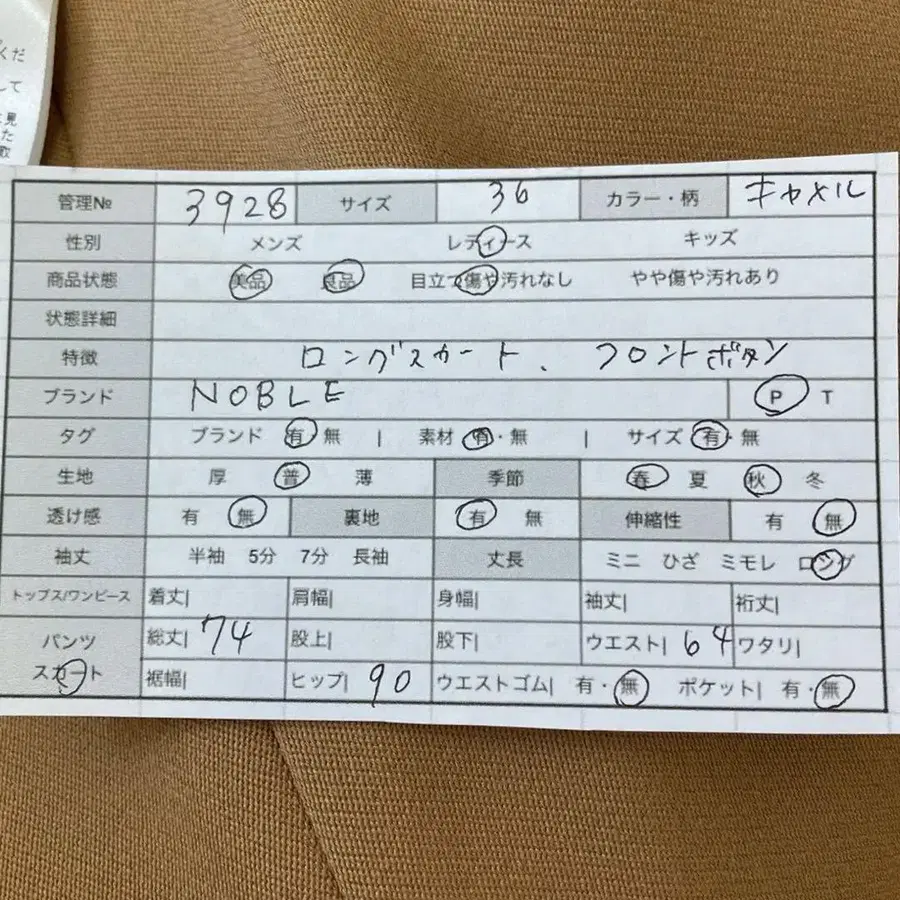 くだ
して
に見
た
歌
管理№ 3928 サイズ 36 カラー・柄 キャメル
性別 メンズ レディース キッズ
商品状態 美品 良品 目立つ傷や汚れなし やや傷や汚れあり
状態詳細
特徴 ロングスカート、フロントボタン
ブランド NOBLE P T
タグ ブランド 有・無 | 素材 有・無 | サイズ 有・無
生地 厚 普 薄 季節 春 夏 秋 冬
透け感 有 無 裏地 有 無 伸縮性 有 無
袖丈 半袖 5分 7分 長袖 丈長 ミニ ひざ ミモレ ロング
トップス/ワンピース 着丈| 肩幅| 身幅| 袖丈| 裄丈|
パンツ 総丈| 74 股上| 股下| ウエスト| 64 ワタリ|
スカート 裾幅| ヒップ| 90 ウエストゴム| 有・無 ポケット| 有・無